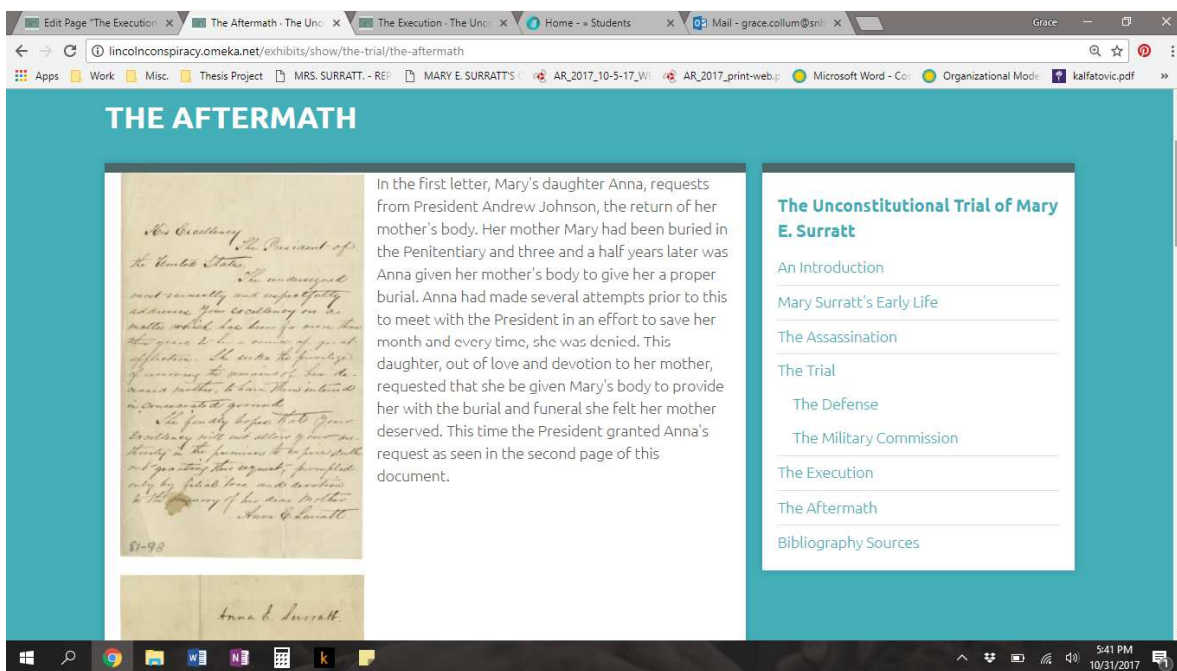 Edit Page "The Execution
The Aftermath · The Unc
The Execution · The Unc
Home - » Students
Mail - grace.collum@snh
Grace
lincolnconspiracy.omeka.net/exhibits/show/the-trial/the-aftermath
Apps
Work
Misc.
Thesis Project
MRS. SURRATT. - REP
MARY E. SURRATT'S
AR_2017_10-5-17_W
AR_2017_print-web.p
Microsoft Word - Co
Organizational Mode
kalfatovic.pdf
»
THE AFTERMATH
His Excellency
The President of
the United States.
The undersigned
most earnestly and respectfully
addresses Your Excellency on a
matter which has been for more than
three years to her a source of great
affliction. She seeks the privilege
of removing the remains of her de-
ceased mother, to have them interred
in consecrated ground.
She fondly hopes that Your
Excellency will not allow your au-
thority in the premises to expire with
out granting this request, prompted
only by filial love and devotion
to the memory of her dear Mother
Anna E. Surratt
81-98
Anna E. Surratt
In the first letter, Mary's daughter Anna, requests
from President Andrew Johnson, the return of her
mother's body. Her mother Mary had been buried in
the Penitentiary and three and a half years later was
Anna given her mother's body to give her a proper
burial. Anna had made several attempts prior to this
to meet with the President in an effort to save her
month and every time, she was denied. This
daughter, out of love and devotion to her mother,
requested that she be given Mary's body to provide
her with the burial and funeral she felt her mother
deserved. This time the President granted Anna's
request as seen in the second page of this
document.
The Unconstitutional Trial of Mary
E. Surratt
An Introduction
Mary Surratt's Early Life
The Assassination
The Trial
The Defense
The Military Commission
The Execution
The Aftermath
Bibliography Sources
5:41 PM
10/31/2017